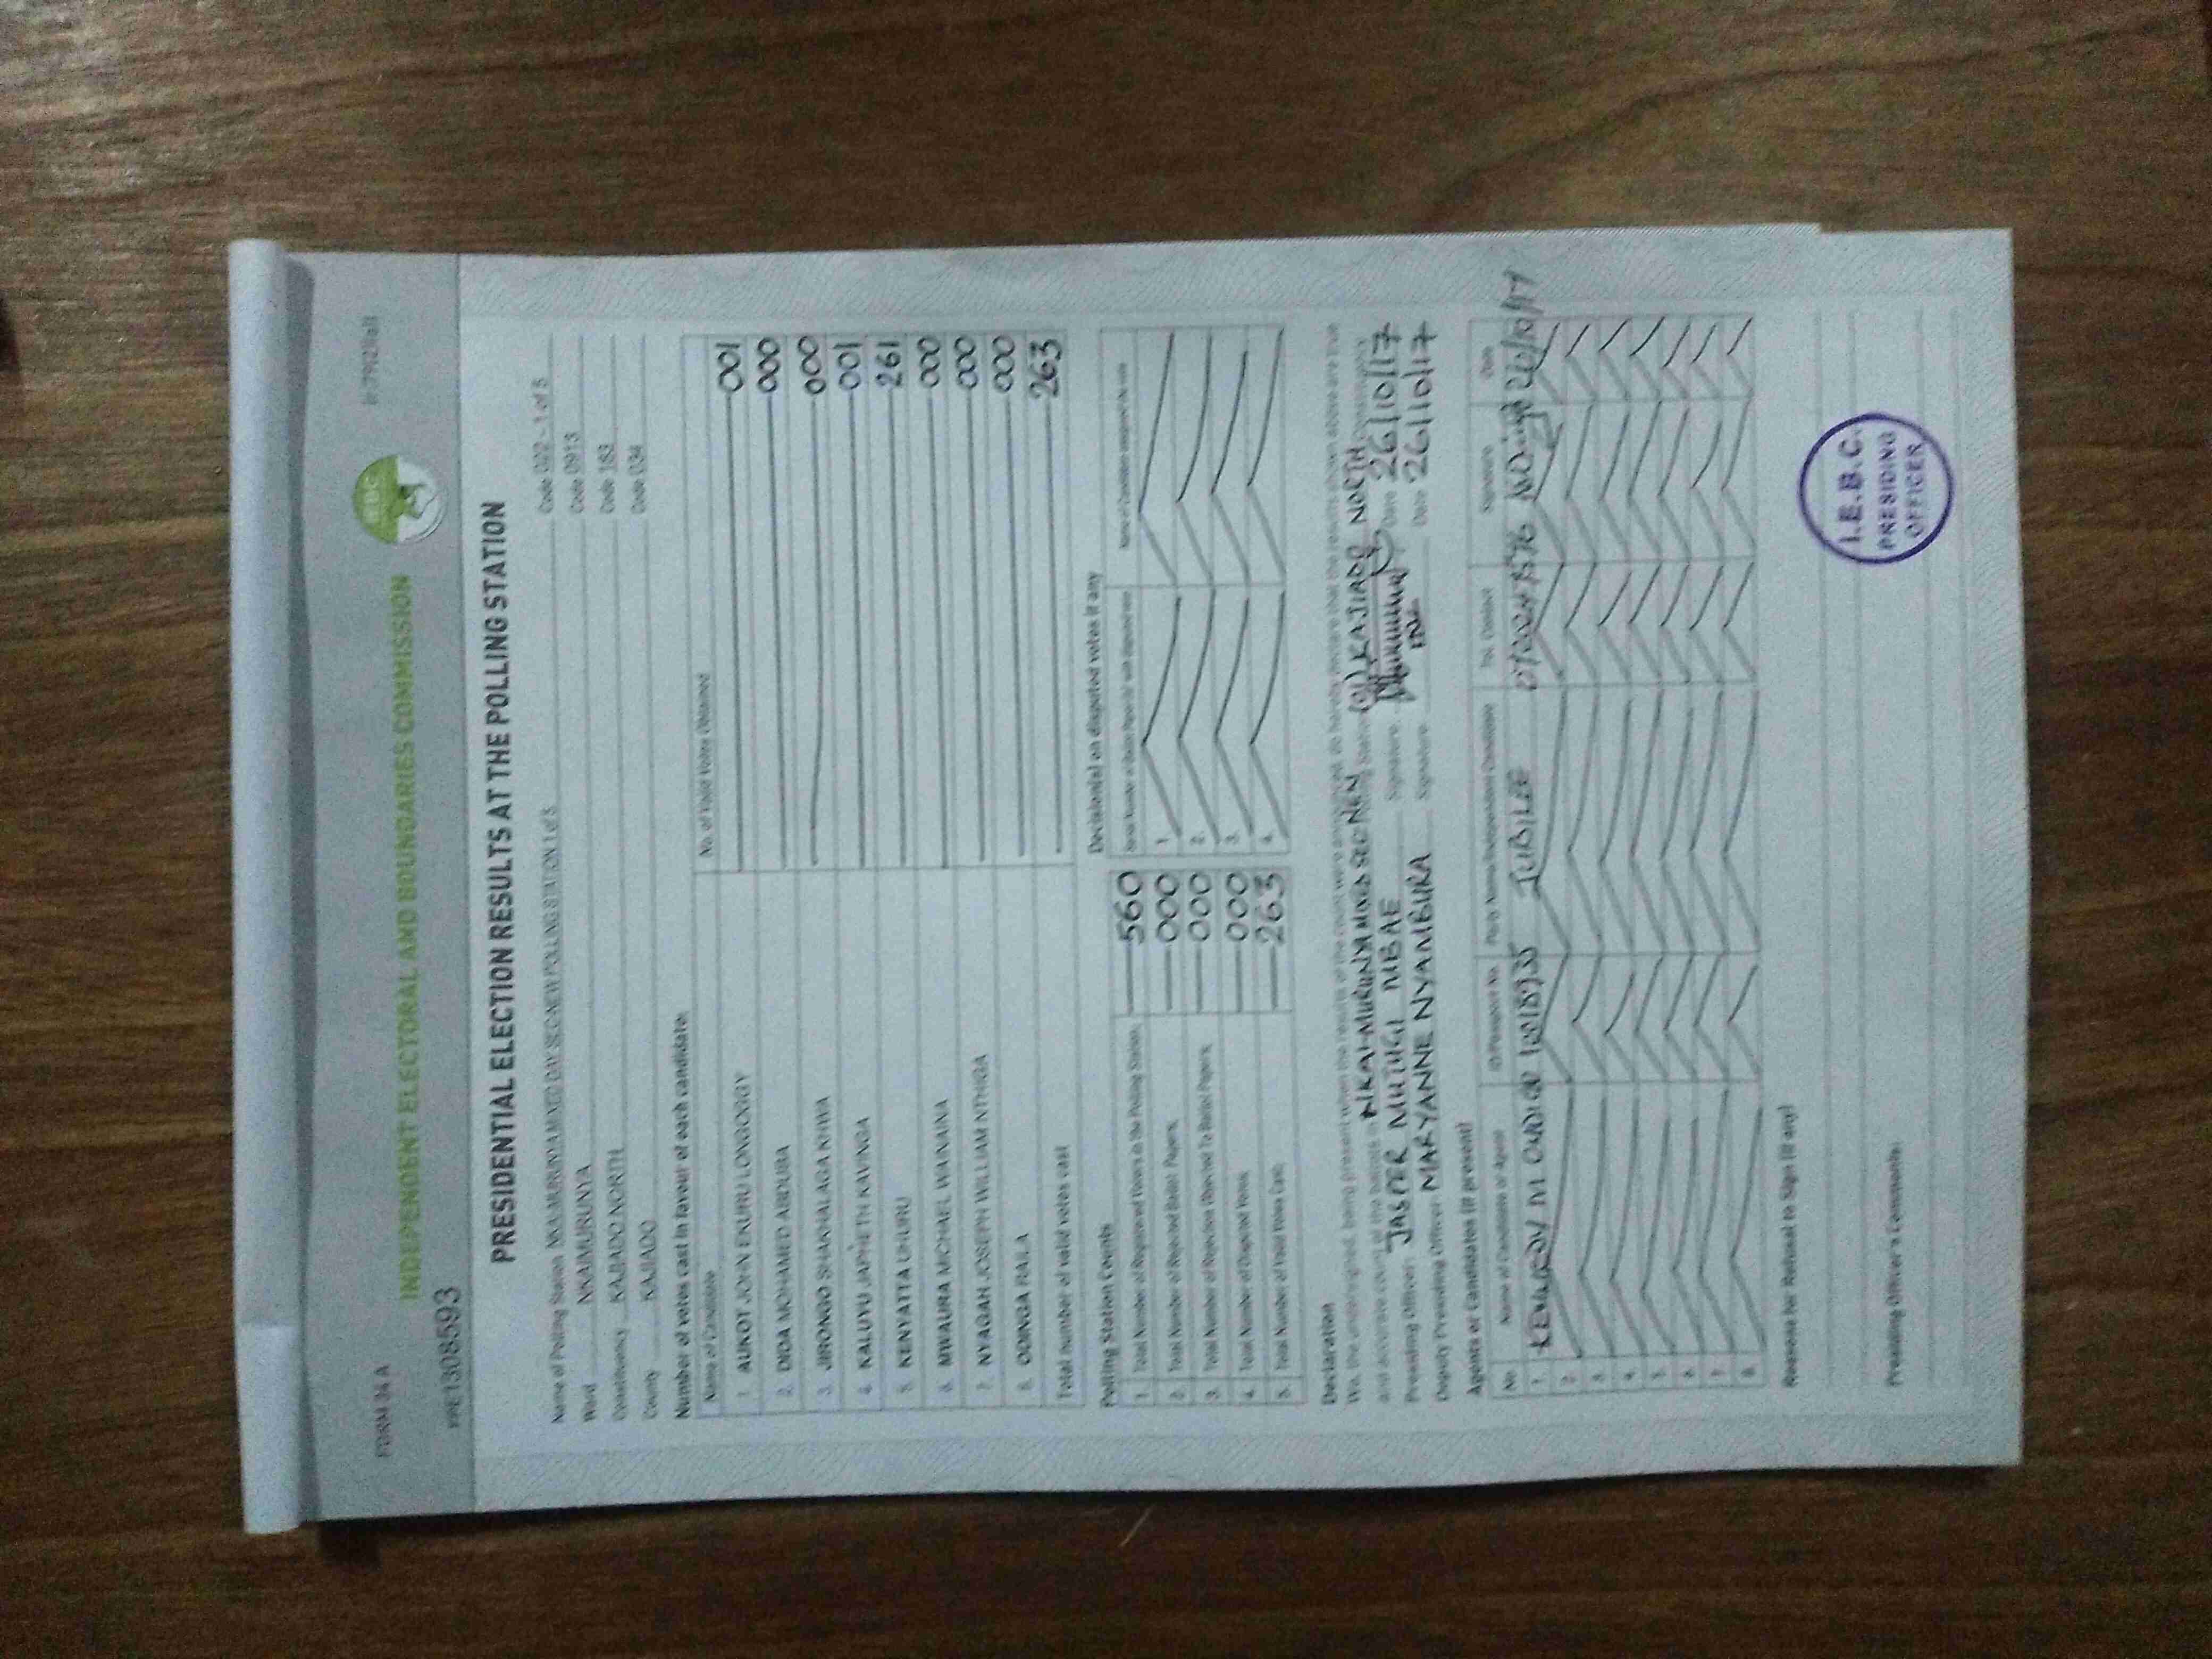 FORM 34 A
INDEPENDENT ELECTORAL AND BOUNDARIES COMMISSION
PRE1308593
PRESIDENTIAL ELECTION RESULTS AT THE POLLING STATION
Name of Polling Station NKAIMURUNYA MIXED DAY SEC-NEW POLLING STATION 1 of 5 Code 022 - 1 of 5
Ward NKAIMURUNYA Code 0913
Constituency KAJIADO NORTH Code 183
County KAJIADO Code 034
Number of votes cast in favour of each candidate:
Name of Candidate No. of Valid Votes Obtained
1. AUKOT JOHN EKURU LONGOGGY 001
2. DIDA MOHAMED ABDUBA 000
3. JIRONGO SHAKHALAGA KHWA 000
4. KALUYU JAPHETH KAVINGA 001
5. KENYATTA UHURU 261
6. MWAURA MICHAEL WAINAINA 000
7. NYAGAH JOSEPH WILLIAM NTHIGA 000
8. ODINGA RAILA 000
Total number of valid votes cast 263
Polling Station Counts
1. Total Number of Registered Voters in the Polling Station 560
2. Total Number of Rejected Ballot Papers 000
3. Total Number of Rejection Objected To Ballot Papers 000
4. Total Number of Disputed Votes 000
5. Total Number of Valid Votes Cast 263
Decision(s) on disputed votes if any
1.
2.
3.
4.
Declaration
We, the undersigned, being present when the results of the count were announced, do hereby declare that the results shown above are true
and accurate count of the ballots in NKAI-MURUNYA MIXED SEC NEW Polling Station (01) KAJIADO NORTH Constituency
Presiding Officer: JASPER MUTUGI MBAE Signature: Date 26/10/17
Deputy Presiding Officer: MARYANNE NYAMBURA Signature: Date 26/10/17
Agents or Candidates (if present)
No. Name of Candidate or Agent ID/Passport No. Party Name/Independent Candidate Tel. Contact Signature Date
1. KENNEDY M. JUBILEE 26/10/17
2.
3.
4.
5.
6.
7.
8.
Reasons for Refusal to Sign (if any)
Presiding Officer's Comments:
I.E.B.C.
PRESIDING
OFFICER